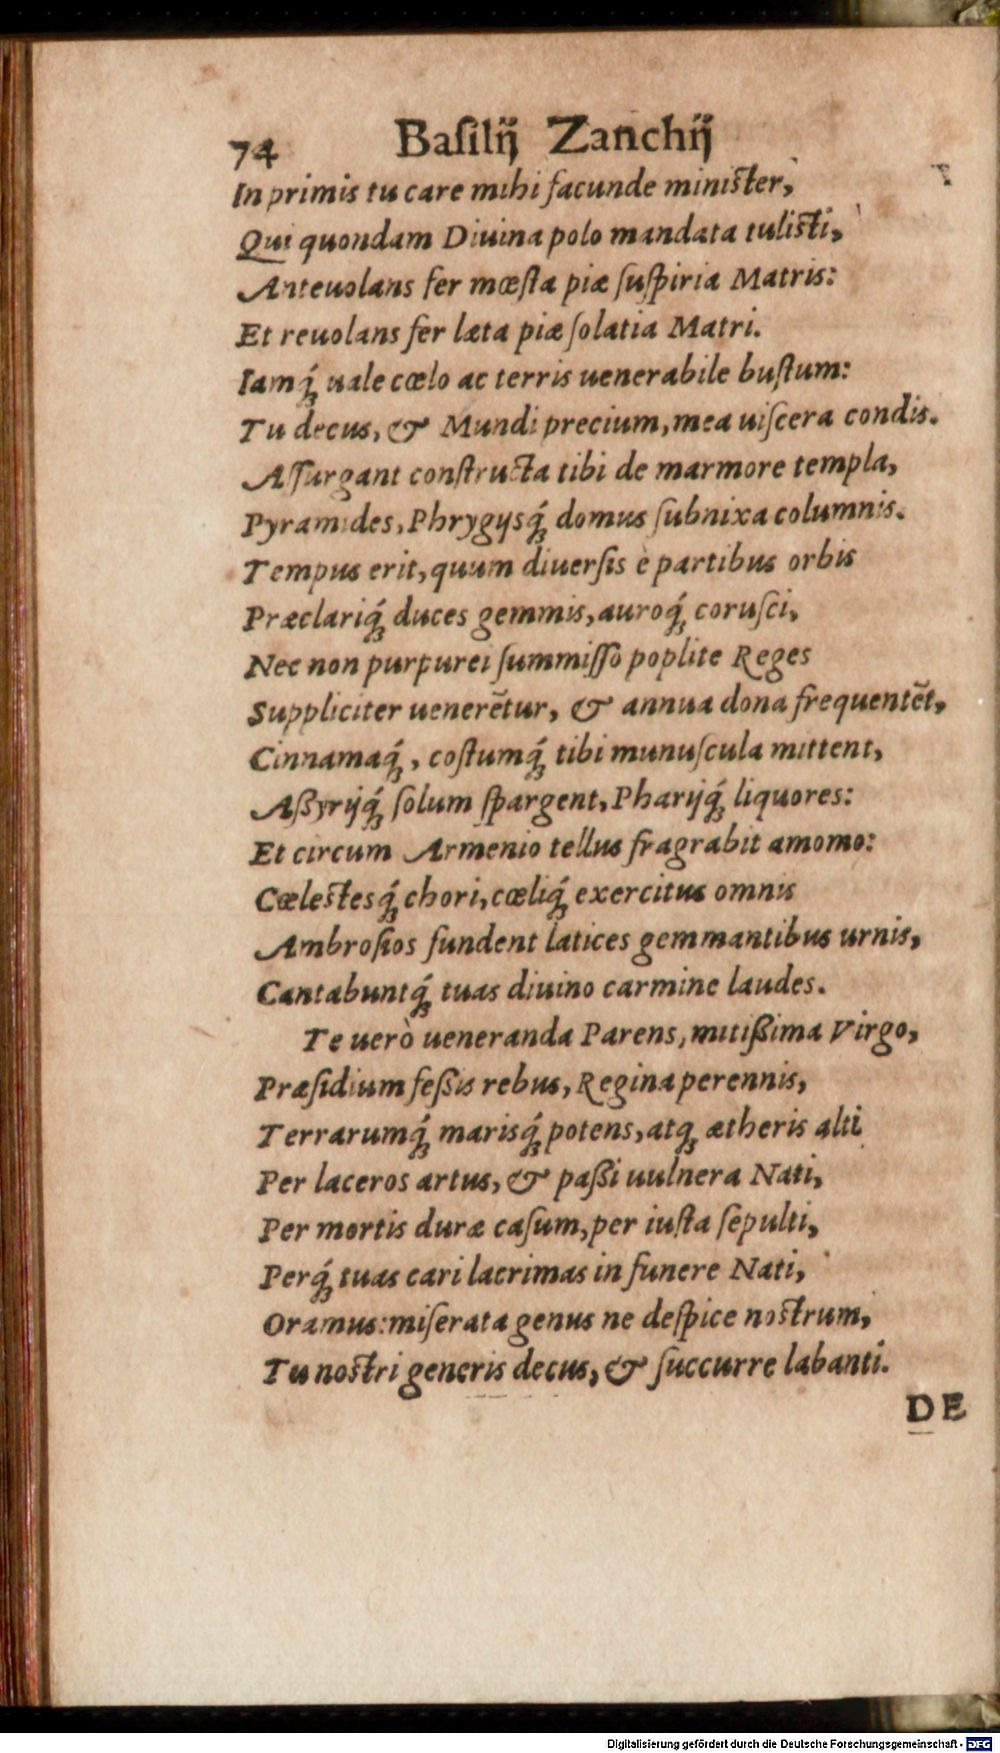 74 Baſilij Zanchij
In primis tu care mihi facunde miniſter,
Qui quondam Diuina polo mandata tuliſti,
Anteuolans fer mœſta piæ ſuſpiria Matris:
Et reuolans fer læta piæ ſolatia Matri.
Iamq́; uale cœlo ac terris uenerabile buſtum:
Tu decus, & Mundi precium, mea uiſcera condis.
Aſſurgant conſtructa tibi de marmore templa,
Pyramides, Phrygijsq́; domus ſubnixa columnis.
Tempus erit, quum diuerſis è partibus orbis
Præclariq́; duces gemmis, auroq́; coruſci,
Nec non purpurei ſummiſſo poplite Reges
Suppliciter uenerētur, & annua dona frequentēt,
Cinnamaq́;, coſtumq́; tibi munuſcula mittent,
Aßyrijq́; ſolum ſpargent, Pharijq́; liquores:
Et circum Armenio tellus fragrabit amomo:
Cœleſtesq́; chori, cœliq́; exercitus omnis
Ambroſios fundent latices gemmantibus urnis,
Cantabuntq́; tuas diuino carmine laudes.
Te uerò ueneranda Parens, mitißima Virgo,
Præſidium feßis rebus, Regina perennis,
Terrarumq́; marisq́; potens, atq; ætheris alti
Per laceros artus, & paßi uulnera Nati,
Per mortis duræ caſum, per iuſta ſepulti,
Perq́; tuas cari lacrimas in funere Nati,
Oramus: miſerata genus ne deſpice noſtrum,
Tu noſtri generis decus, & ſuccurre labanti.
DE
Digitalisierung gefördert durch die Deutsche Forschungsgemeinschaft - DFG